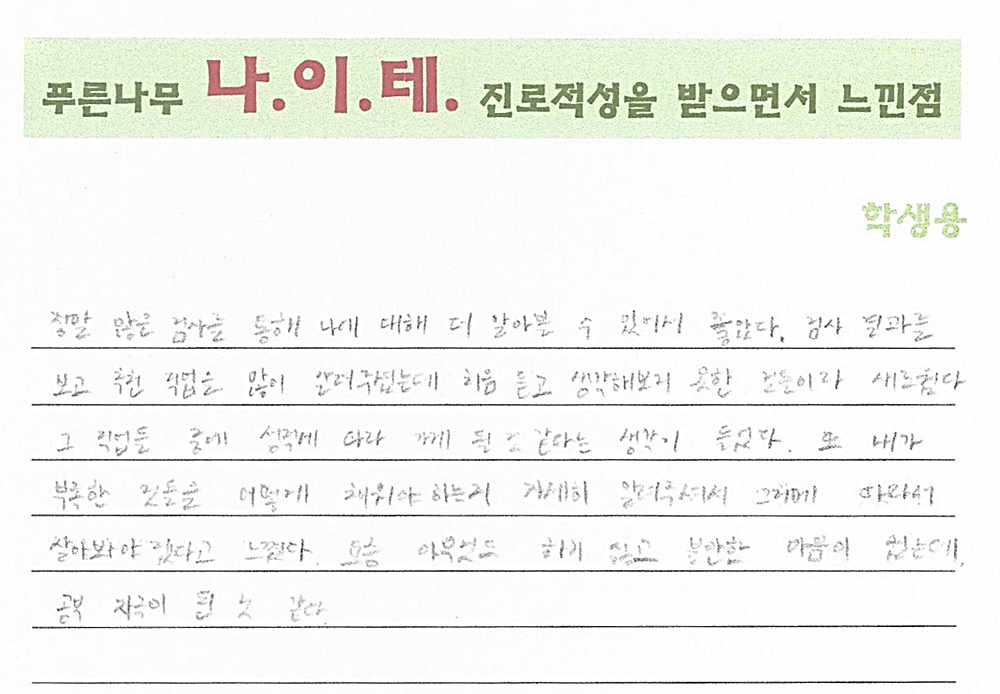 푸른나무 나.이.테. 진로적성을 받으면서 느낀점
학생용
정말 많은 검사를 통해 나에 대해 더 알아볼 수 있어서 좋았다. 검사 결과를
보고 추천 직업을 많이 알려주셨는데 처음 듣고 생각해보지 못한 것들이라 새로웠다
그 직업들 중에 성적에 따라 가게 될 것 같다는 생각이 들었다. 또 내가
부족한 것들을 어떻게 채워야 하는지 자세히 알려주셔서 그에 따라서
살아봐야겠다고 느꼈다. 요즘 아무것도 하기 싫고 불안한 마음이 컸는데,
공부 자극이 된 것 같다.